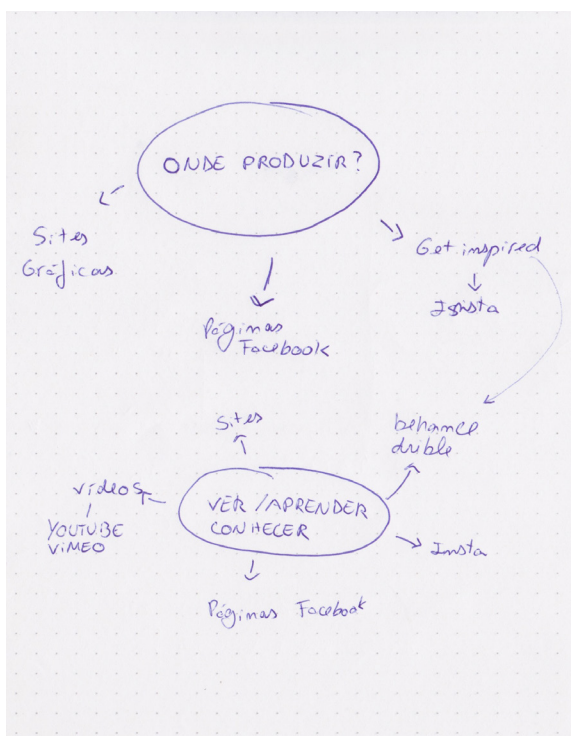 ONDE PRODUZIR?
Sites
Gráficas
Get inspired
Insta
Páginas
Facebook
Sites
behance
drible
vídeos
YOUTUBE
VIMEO
VER / APRENDER
CONHECER
Insta
Páginas Facebook